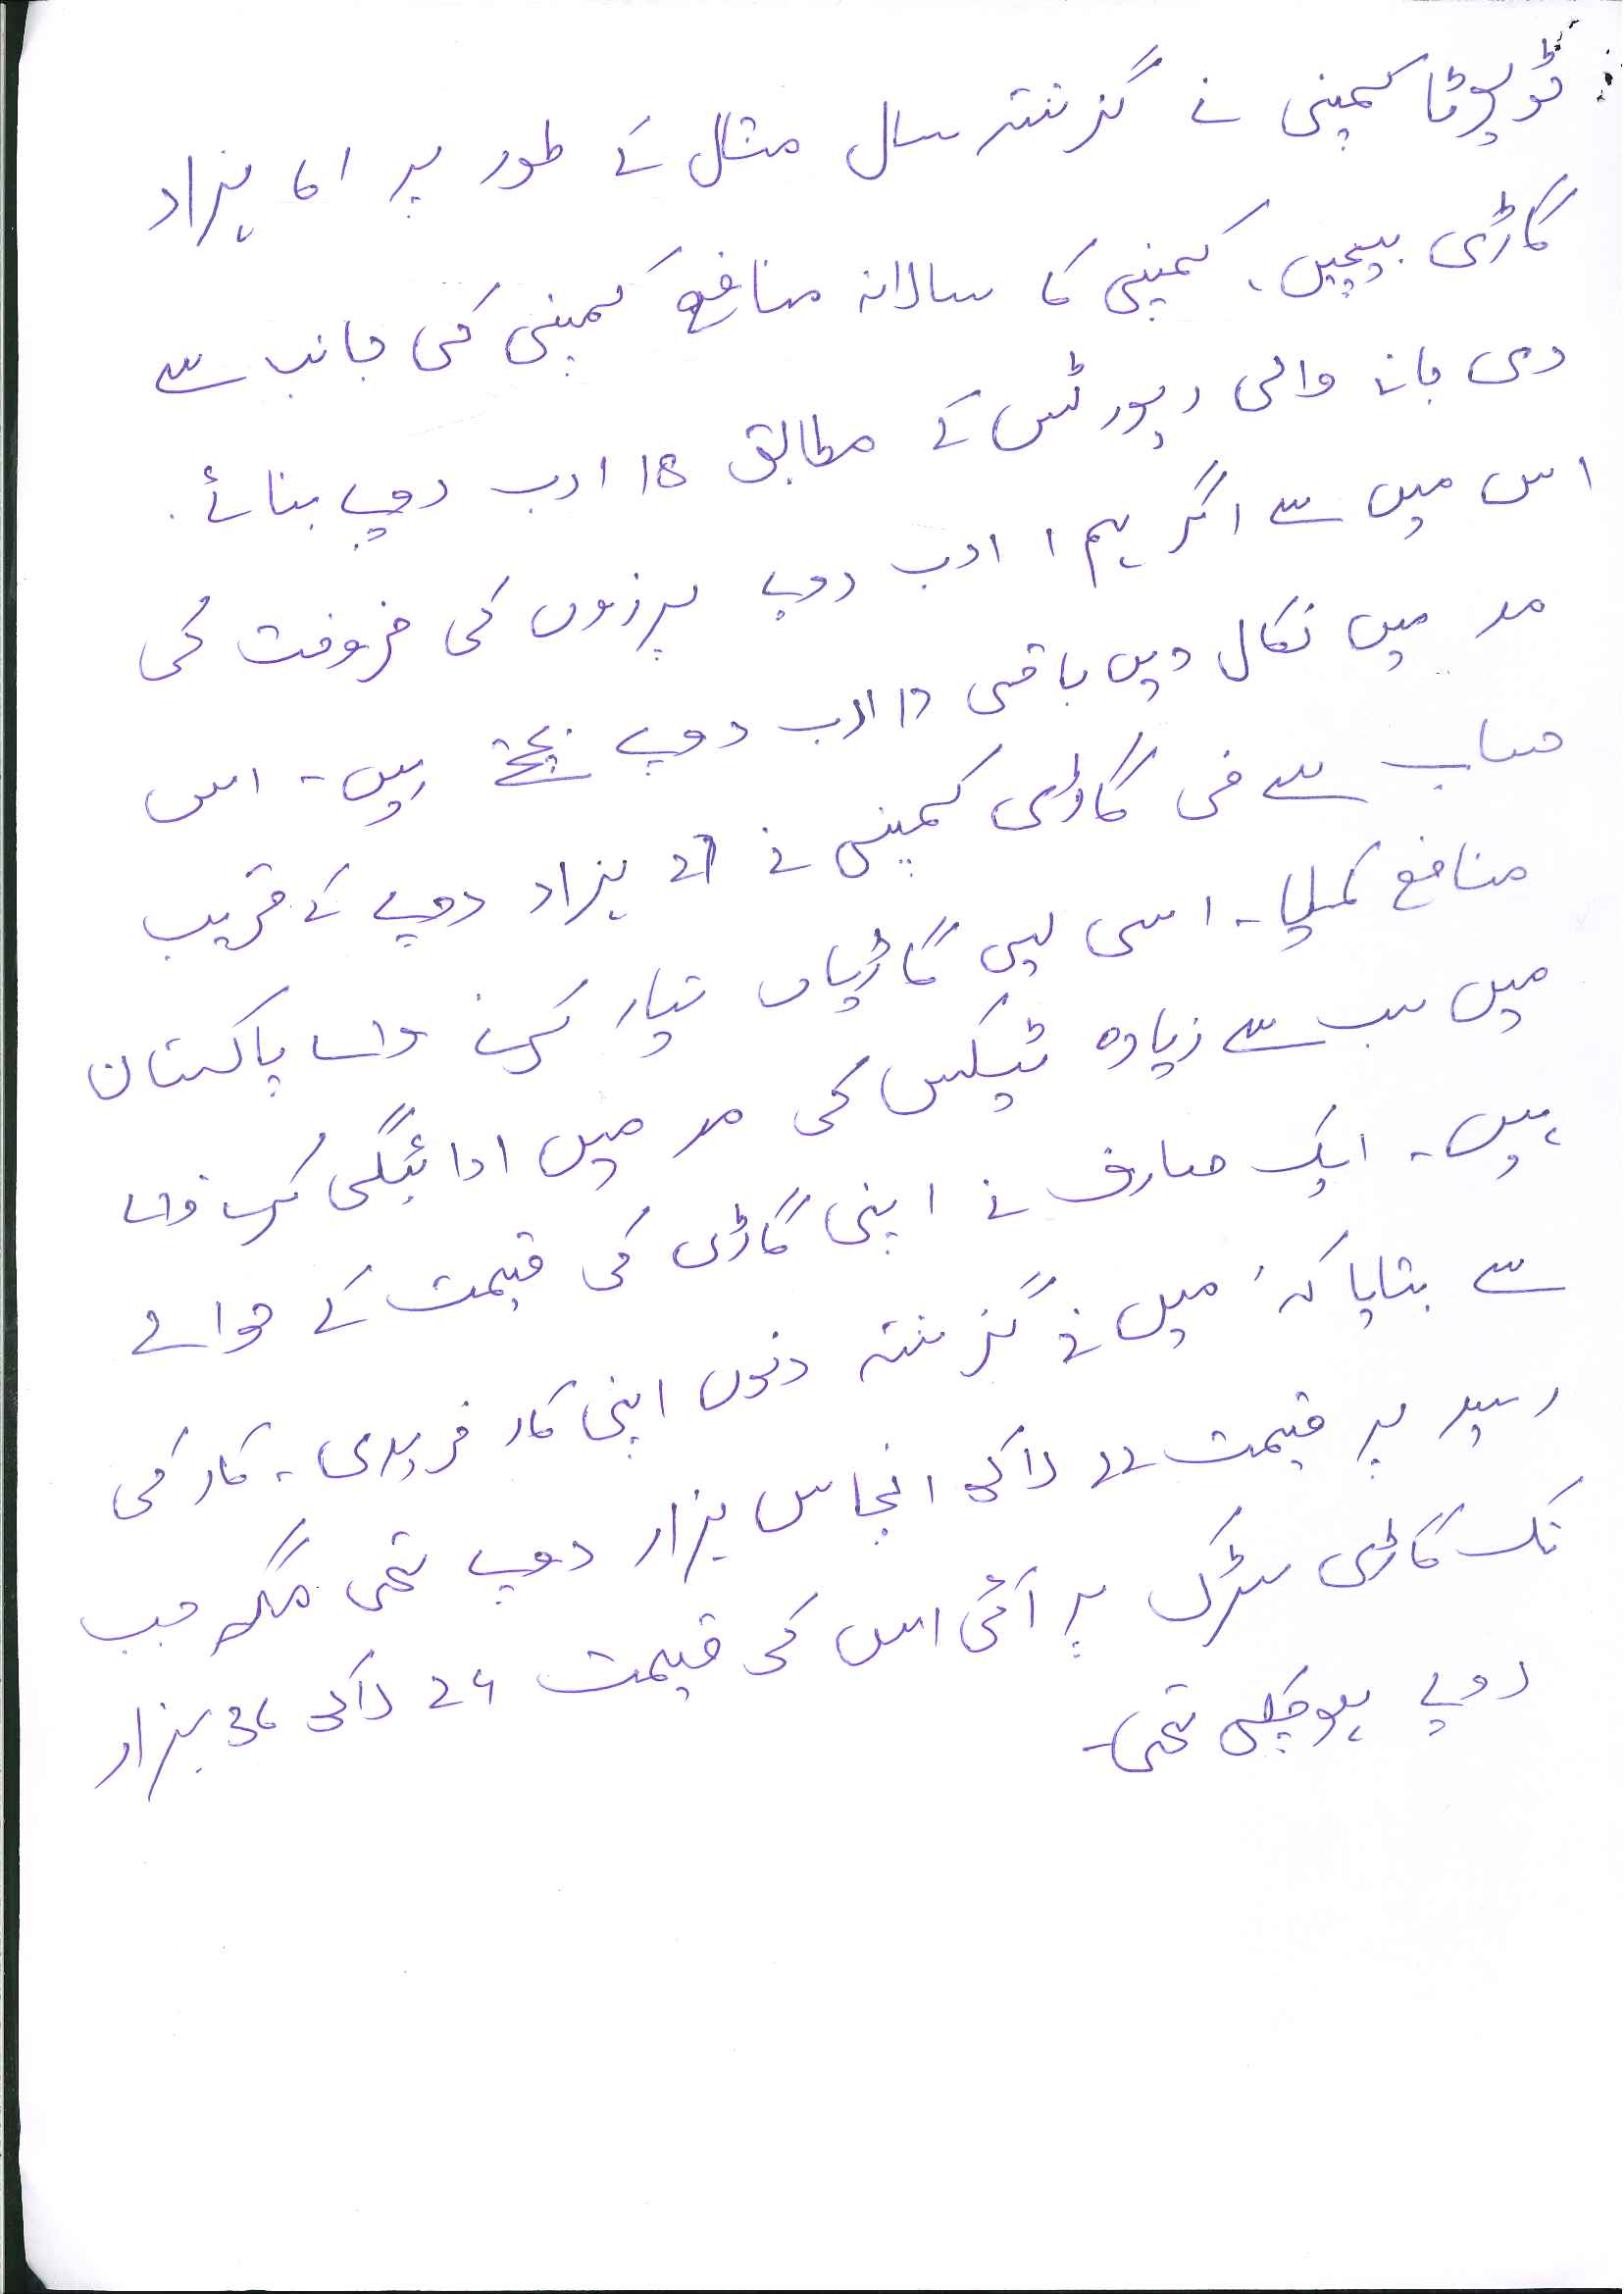 ٹویوٹا کمپنی نے گزشتہ سال مثال کے طور پر 61 ہزار
گاڑی بیچیں۔ کمپنی کا سالانہ منافع کمپنی کی جانب سے
دی جانے والی رپورٹس کے مطابق 18 ارب روپے بنائے۔
اس میں سے اگر ہم 1 ارب روپے پرزوں کی فروخت کی
مد میں نکال دیں باقی 17 ارب روپے بچتے ہیں۔ اس
حساب سے فی گاڑی کمپنی نے 27 ہزار روپے کے قریب
منافع کمایا۔ اسی لیے گاڑیاں تیار کرنے والے پاکستان
میں سب سے زیادہ ٹیکس کی مد میں ادائیگی کرنے والے
ہیں۔ ایک صارف نے اپنی گاڑی کی قیمت کے حوالے
سے بتایا کہ میں نے گزشتہ دنوں اپنی کار خریدی۔ کار کی
رسید پر قیمت 22 لاکھ انچاس ہزار روپے تھی مگر جب
تک گاڑی سڑک پر آئی اس کی قیمت 24 لاکھ 36 ہزار
روپے ہوچکی تھی۔